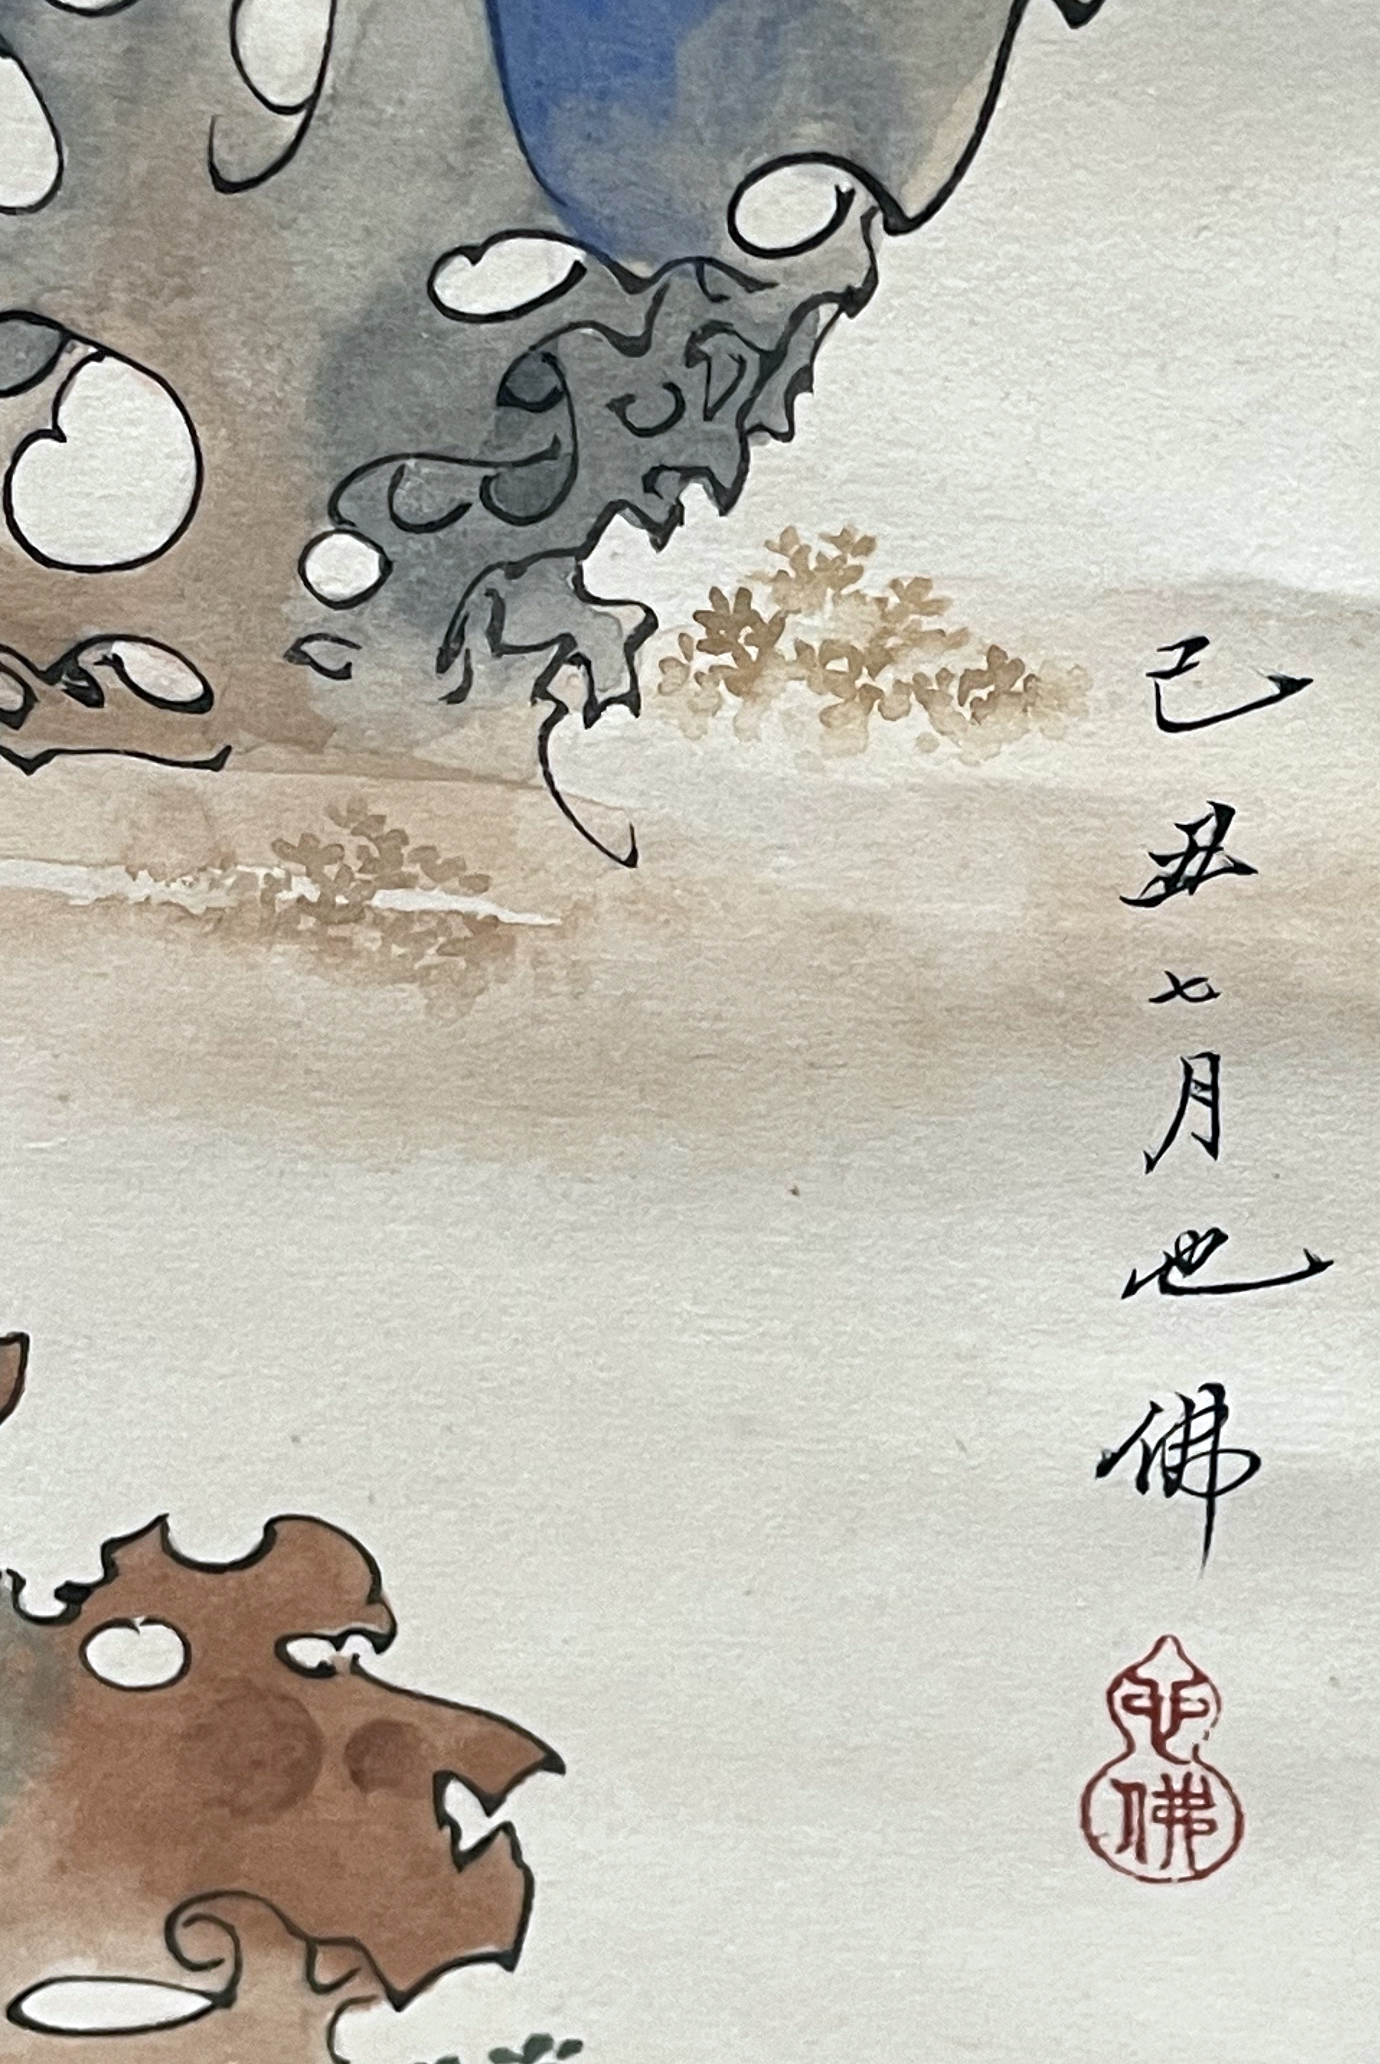 己丑七月也佛
也佛